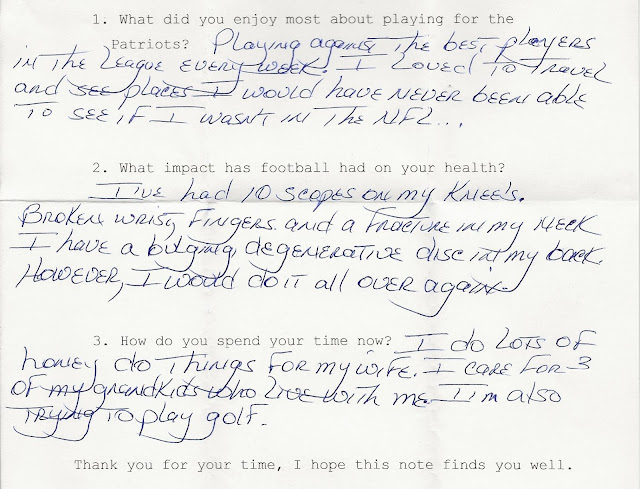 1. What did you enjoy most about playing for the
Patriots? Playing against The best players
in The League every week. I Loved To Travel
and see places I would have never been able
To see if I wasn't in The NFL...
2. What impact has football had on your health?
I I've had 10 scopes on my Knee's.
Broken wrist, Fingers and a fracture in my neck
I have a bulging, degenerative disc in my back.
However, I would do it all over again.
3. How do you spend your time now? I do Lots of
honey do Things for my wife. I care for 3
of my grandkids who Live with me. I I'm also
Trying To play golf.
Thank you for your time, I hope this note finds you well.